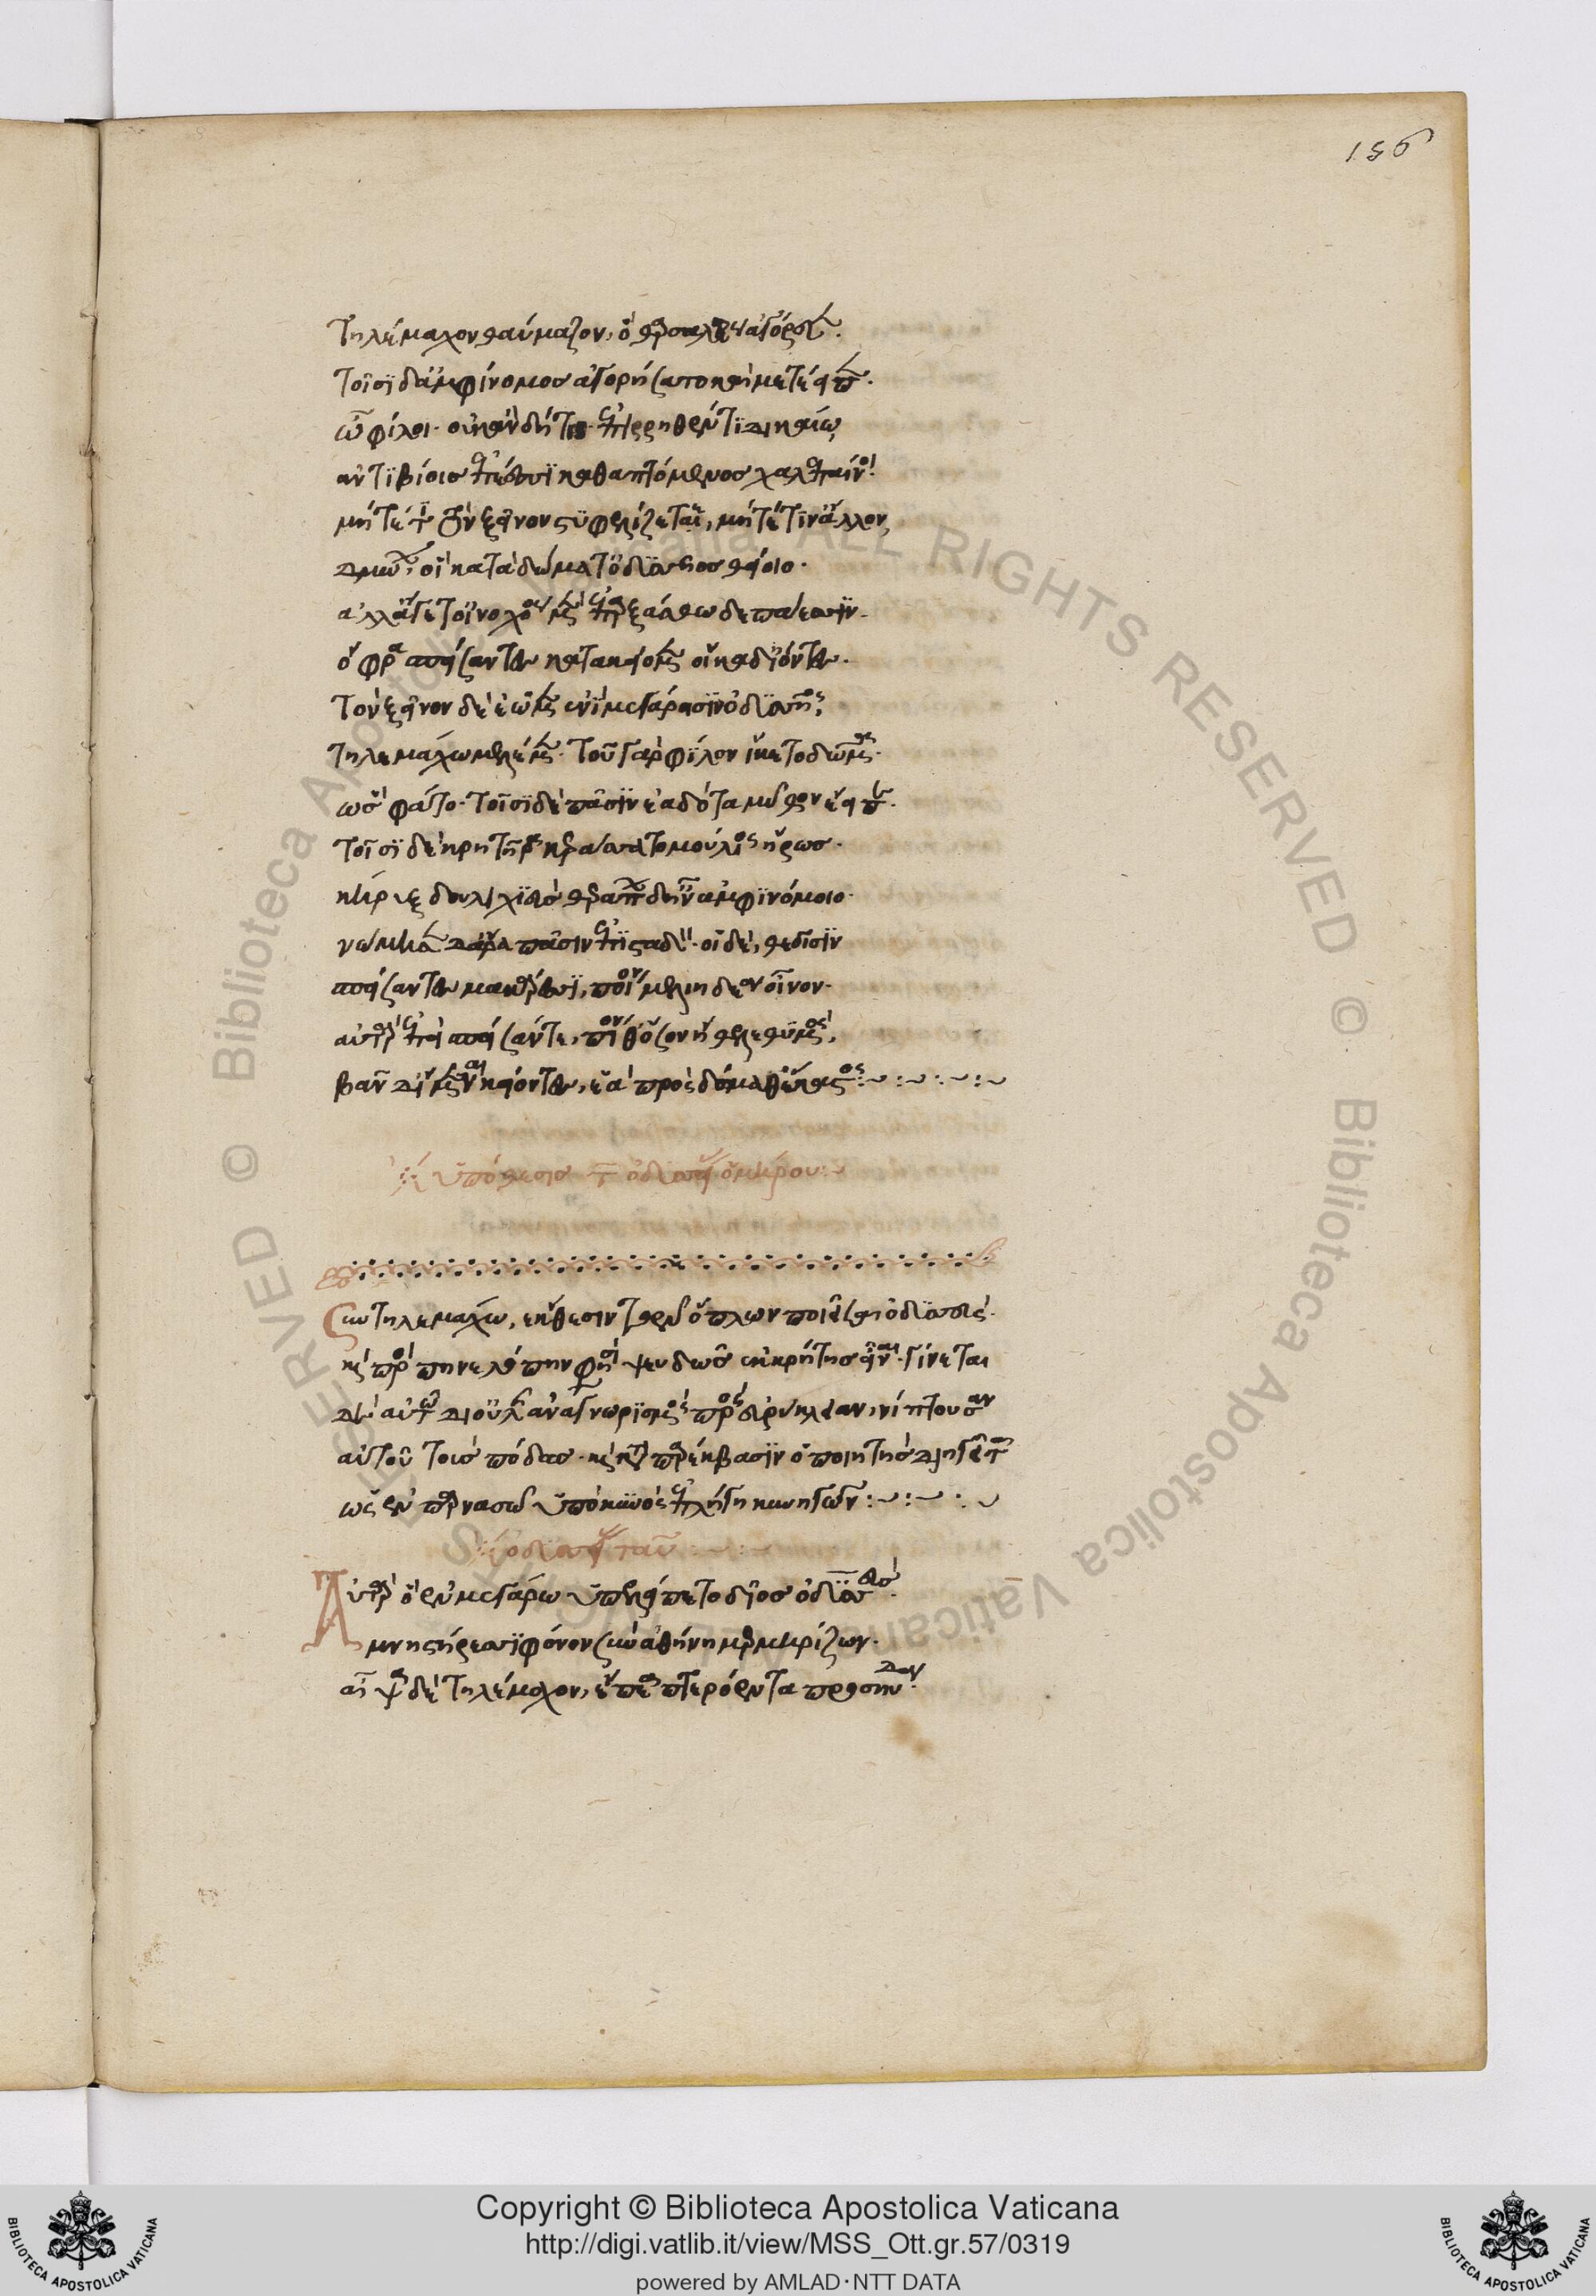 156
Τηλέμαχον θαύμαζον, ὃ θαρσαλέως ἀγόρευε.
τοῖσι δ' ἀμφίνομος ἀγορήσατο καὶ μετέειπε.
ὦ φίλοι. οὐκ ἂν δή τις ἐπὶ ῥηθέντι δικαίω
ἀντιβίοις ἐπέεσσι καθαπτόμενος χαλεπαίνοι.
μήτέ τι τὸν ξεῖνον στυφελίζετε, μήτέ τιν' ἄλλον
δμώων, οἳ κατὰ δώματ' ὀδυσσῆος θείοιο.
ἀλλ' ἄγετ' οἰνοχόος μὲν ἐπαρξάσθω δεπάεσσιν.
ὄφρα σπείσαντες κατακείομεν οἴκαδ' ἰόντες.
τὸν ξεῖνον δὲ ἐῶμεν ἐνὶ μεγάροισιν ὀδυσσῆος,
τηλεμάχω μελέμεν. τοῦ γὰρ φίλον ἵκετο δῶμα.
ὣς φάτο. τοῖσι δὲ πᾶσιν ἑαδότα μῦθον ἔειπε.
τοῖσι δὲ κρητῆρα κεράσσατο μούλιος ἥρως.
κῆρυξ δουλιχιεὺς θεράπων δ' ἦν ἀμφινόμοιο.
νώμησεν δ' ἄρα πᾶσιν ἐπισταδόν. οἱ δὲ, θεοῖσιν
σπείσαντες μακάρεσσι, πίον μελιηδέα οἶνον.
αὐτὰρ ἐπεὶ σπεῖσάν τε, πίον θ' ὅσον ἤθελε θυμός,
βάν δ' ἴμεναι κείοντες, ἑὰ πρὸς δώμαθ' ἕκαστος
ὑπόθεσις τ ὀδυσσείας ὁμήρου
Σὺν τηλεμάχω, ἔκθεσιν τῶν ὅπλων ποιεῖται ὀδυσσεύς.
καὶ πρὸς πηνελόπην φησὶ ψευδῶς ἐκ κρήτης εἶναι. γίνεται
δὲ αὐτῶ δι' οὐλὴν ἀναγνωρισμὸς πρὸς εὐρύκλειαν, νίπτουσαν
αὐτοῦ τοὺς πόδας. καὶ κατὰ παρέκβασιν ὁ ποιητὴς διηγεῖται
ὡς ἐν παρνασῶ ὑπὸ συὸς ἐπλήγη κυνηγῶν
ὀδυσσείας ταῦ
Αὐτὰρ ὃ ἐν μεγάρω ὑπελείπετο δῖος ὀδυσσεύς.
μνηστήρεσσι φόνον σὺν ἀθήνη μερμηρίζων.
αἶψα δὲ τηλέμαχον, ἔπεα πτερόεντα προσηύδα.
Copyright © Biblioteca Apostolica Vaticana
http://digi.vatlib.it/view/MSS_Ott.gr.57/0319
powered by AMLAD·NTT DATA